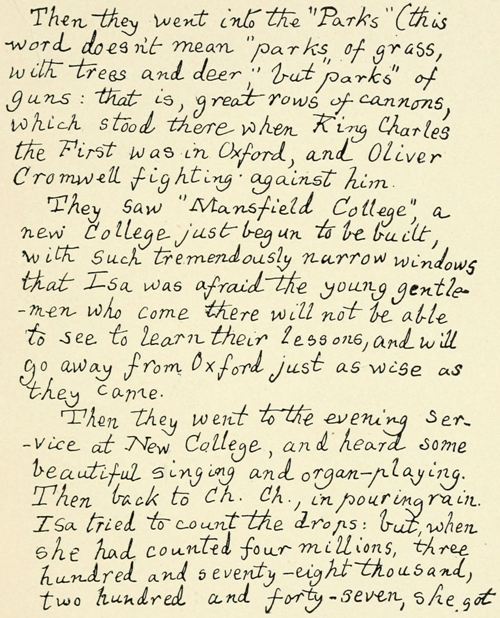 Then they went into the "Parks" (this
word doesn't mean "parks of grass,
with trees and deer," but "parks" of
guns : that is, great rows of cannons,
which stood there when King Charles
the First was in Oxford, and Oliver
Cromwell fighting against him.
They saw "Mansfield College", a
new College just begun to be built,
with such tremendously narrow windows
that Isa was afraid the young gentle-
-men who come there will not be able
to see to learn their lessons, and will
go away from Oxford just as wise as
they came.
Then they went to the evening ser-
-vice at New College, and heard some
beautiful singing and organ-playing.
Then back to Ch. Ch., in pouring rain.
Isa tried to count the drops: but, when
she had counted four millions, three
hundred and seventy-eight thousand,
two hundred and forty-seven, she got